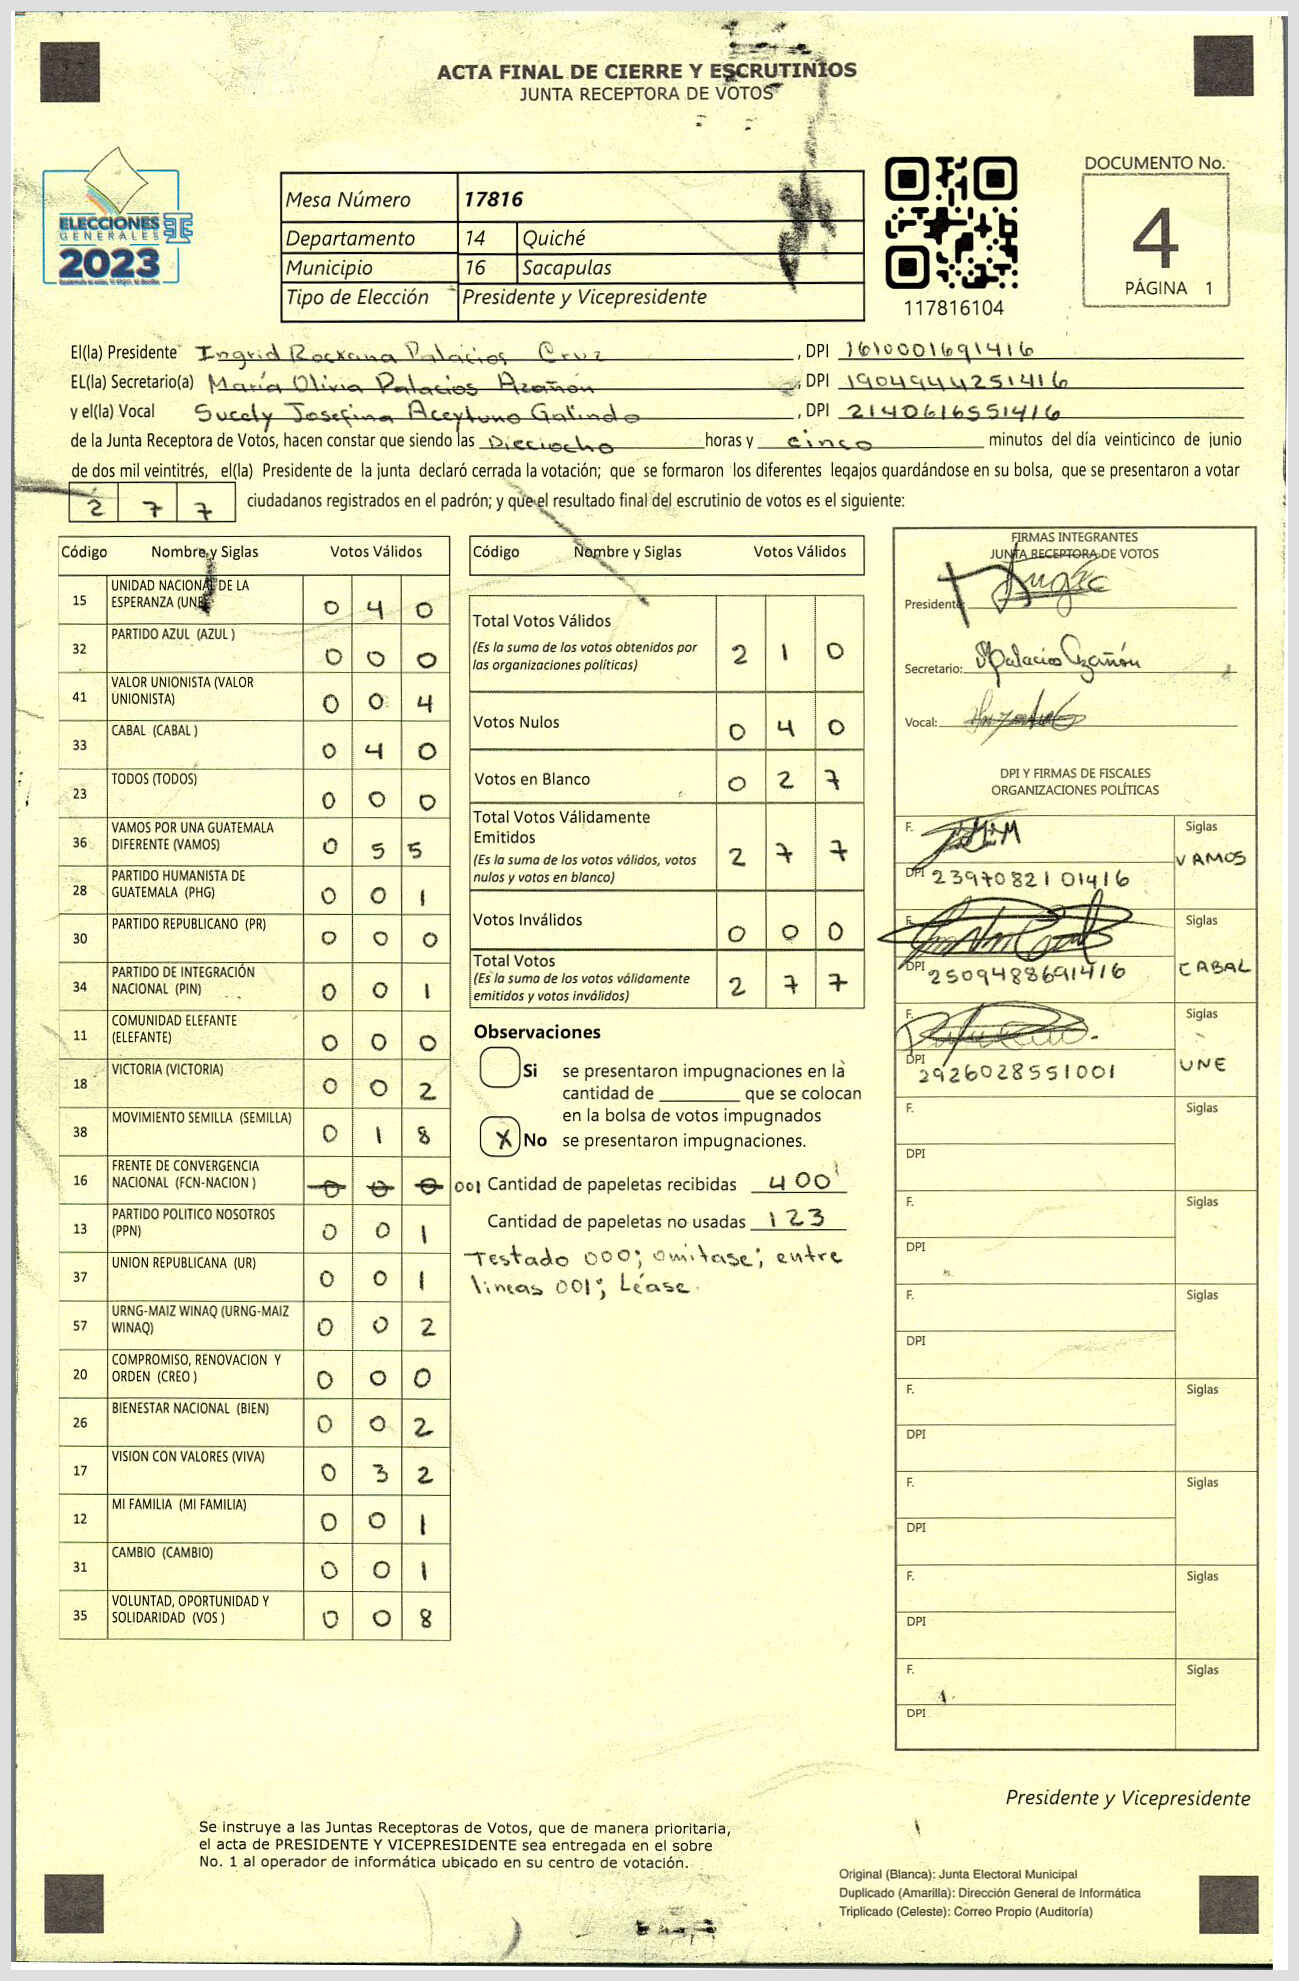 ACTA FINAL DE CIERRE Y ESCRUTINIOS
JUNTA RECEPTORA DE VOTOS
ELECCIONES
GENERALES
2023
Mesa Número 17816
Departamento 14 Quiché
Municipio 16 Sacapulas
Tipo de Elección Presidente y Vicepresidente
117816104
DOCUMENTO No.
4
PÁGINA 1
El(la) Presidente Ingrid Rocxana Palacios Cruz, DPI 1610001691416
EL(la) Secretario(a) María Olivia Palacios Azañón, DPI 1904944251416
y el(la) Vocal Sucely Josefina Aceytuno Galindo, DPI 2140616551416
de la Junta Receptora de Votos, hacen constar que siendo las Dieciocho horas y cinco minutos del día veinticinco de junio
de dos mil veintitrés, el(la) Presidente de la junta declaró cerrada la votación; que se formaron los diferentes legajos guardándose en su bolsa, que se presentaron a votar
2 7 7 ciudadanos registrados en el padrón; y que el resultado final del escrutinio de votos es el siguiente:
Código Nombre y Siglas Votos Válidos
15 UNIDAD NACIONAL DE LA
ESPERANZA (UNE) 0 4 0
32 PARTIDO AZUL (AZUL ) 0 0 0
41 VALOR UNIONISTA (VALOR
UNIONISTA) 0 0 4
33 CABAL (CABAL ) 0 4 0
23 TODOS (TODOS) 0 0 0
36 VAMOS POR UNA GUATEMALA
DIFERENTE (VAMOS) 0 5 5
28 PARTIDO HUMANISTA DE
GUATEMALA (PHG) 0 0 1
30 PARTIDO REPUBLICANO (PR) 0 0 0
34 PARTIDO DE INTEGRACIÓN
NACIONAL (PIN) 0 0 1
11 COMUNIDAD ELEFANTE
(ELEFANTE) 0 0 0
18 VICTORIA (VICTORIA) 0 0 2
38 MOVIMIENTO SEMILLA (SEMILLA) 0 1 8
16 FRENTE DE CONVERGENCIA
NACIONAL (FCN-NACION ) 0 0 0 001
13 PARTIDO POLITICO NOSOTROS
(PPN) 0 0 1
37 UNION REPUBLICANA (UR) 0 0 1
57 URNG-MAIZ WINAQ (URNG-MAIZ
WINAQ) 0 0 2
20 COMPROMISO, RENOVACION Y
ORDEN (CREO ) 0 0 0
26 BIENESTAR NACIONAL (BIEN) 0 0 2
17 VISION CON VALORES (VIVA) 0 3 2
12 MI FAMILIA (MI FAMILIA) 0 0 1
31 CAMBIO (CAMBIO) 0 0 1
35 VOLUNTAD, OPORTUNIDAD Y
SOLIDARIDAD (VOS ) 0 0 8
Código Nombre y Siglas Votos Válidos
Total Votos Válidos
(Es la suma de los votos obtenidos por
las organizaciones políticas) 2 1 0
Votos Nulos 0 4 0
Votos en Blanco 0 2 7
Total Votos Válidamente
Emitidos
(Es la suma de los votos válidos, votos
nulos y votos en blanco) 2 7 7
Votos Inválidos 0 0 0
Total Votos
(Es la suma de los votos válidamente
emitidos y votos inválidos) 2 7 7
Observaciones
Si se presentaron impugnaciones en la
cantidad de ________ que se colocan
en la bolsa de votos impugnados
X No se presentaron impugnaciones.
Cantidad de papeletas recibidas 400
Cantidad de papeletas no usadas 123
Testado 000; omitase; entre
lineas 001; Léase.
FIRMAS INTEGRANTES
JUNTA RECEPTORA DE VOTOS
Presidente:
Secretario: Palacios Azañón
Vocal:
DPI Y FIRMAS DE FISCALES
ORGANIZACIONES POLÍTICAS
F. Siglas
VAMOS
DPI 2397082101416
F. Siglas
CABAL
DPI 2509488691416
F. Siglas
UNE
DPI 2926028551001
F. Siglas
DPI
F. Siglas
DPI
F. Siglas
DPI
F. Siglas
DPI
F. Siglas
DPI
F. Siglas
DPI
F. Siglas
DPI
Presidente y Vicepresidente
Se instruye a las Juntas Receptoras de Votos, que de manera prioritaria,
el acta de PRESIDENTE Y VICEPRESIDENTE sea entregada en el sobre
No. 1 al operador de informática ubicado en su centro de votación.
Original (Blanca): Junta Electoral Municipal
Duplicado (Amarilla): Dirección General de Informática
Triplicado (Celeste): Correo Propio (Auditoría)